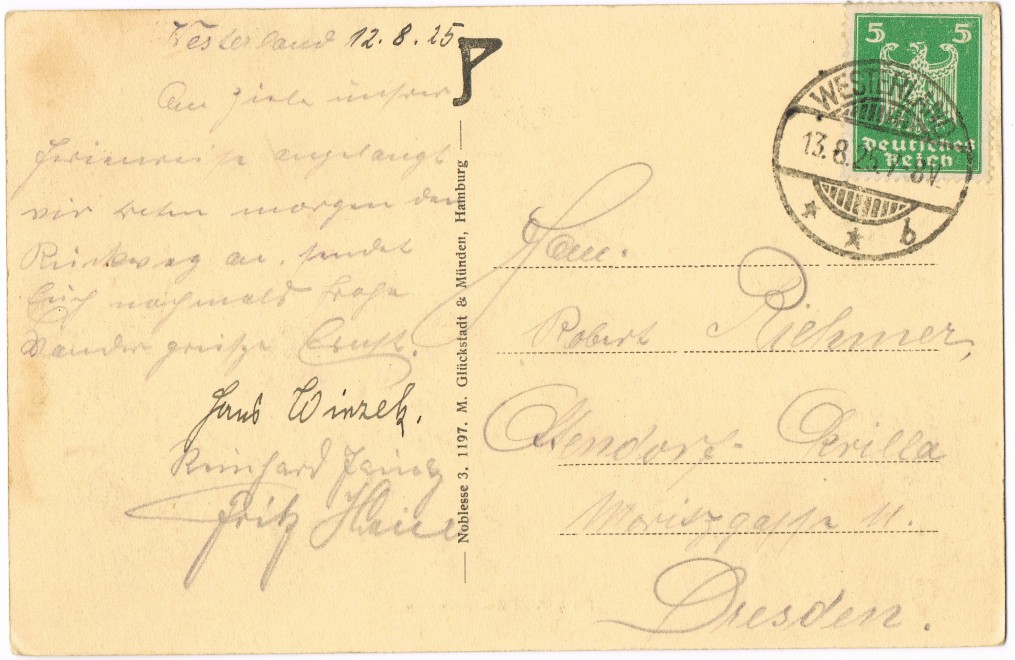 Westerland 12.8.25
Am Ziele unsrer
Ferienreise angelangt
wir treten morgen den
Rückweg an. sendet
Euch nochmals frohe
Wandergrüße Ernst.
Hans Wirzek.
Reinhard
Fritz
Noblesse 3. 1197. M. Glückstadt & Münden, Hamburg
5 5
Deutsches
Reich
WESTERLAND
13.8.25.7-8V.
* * b
Herrn.
Robert Riehmer,
Ottendorf-Okrilla
Moritzgasse 11.
Dresden.